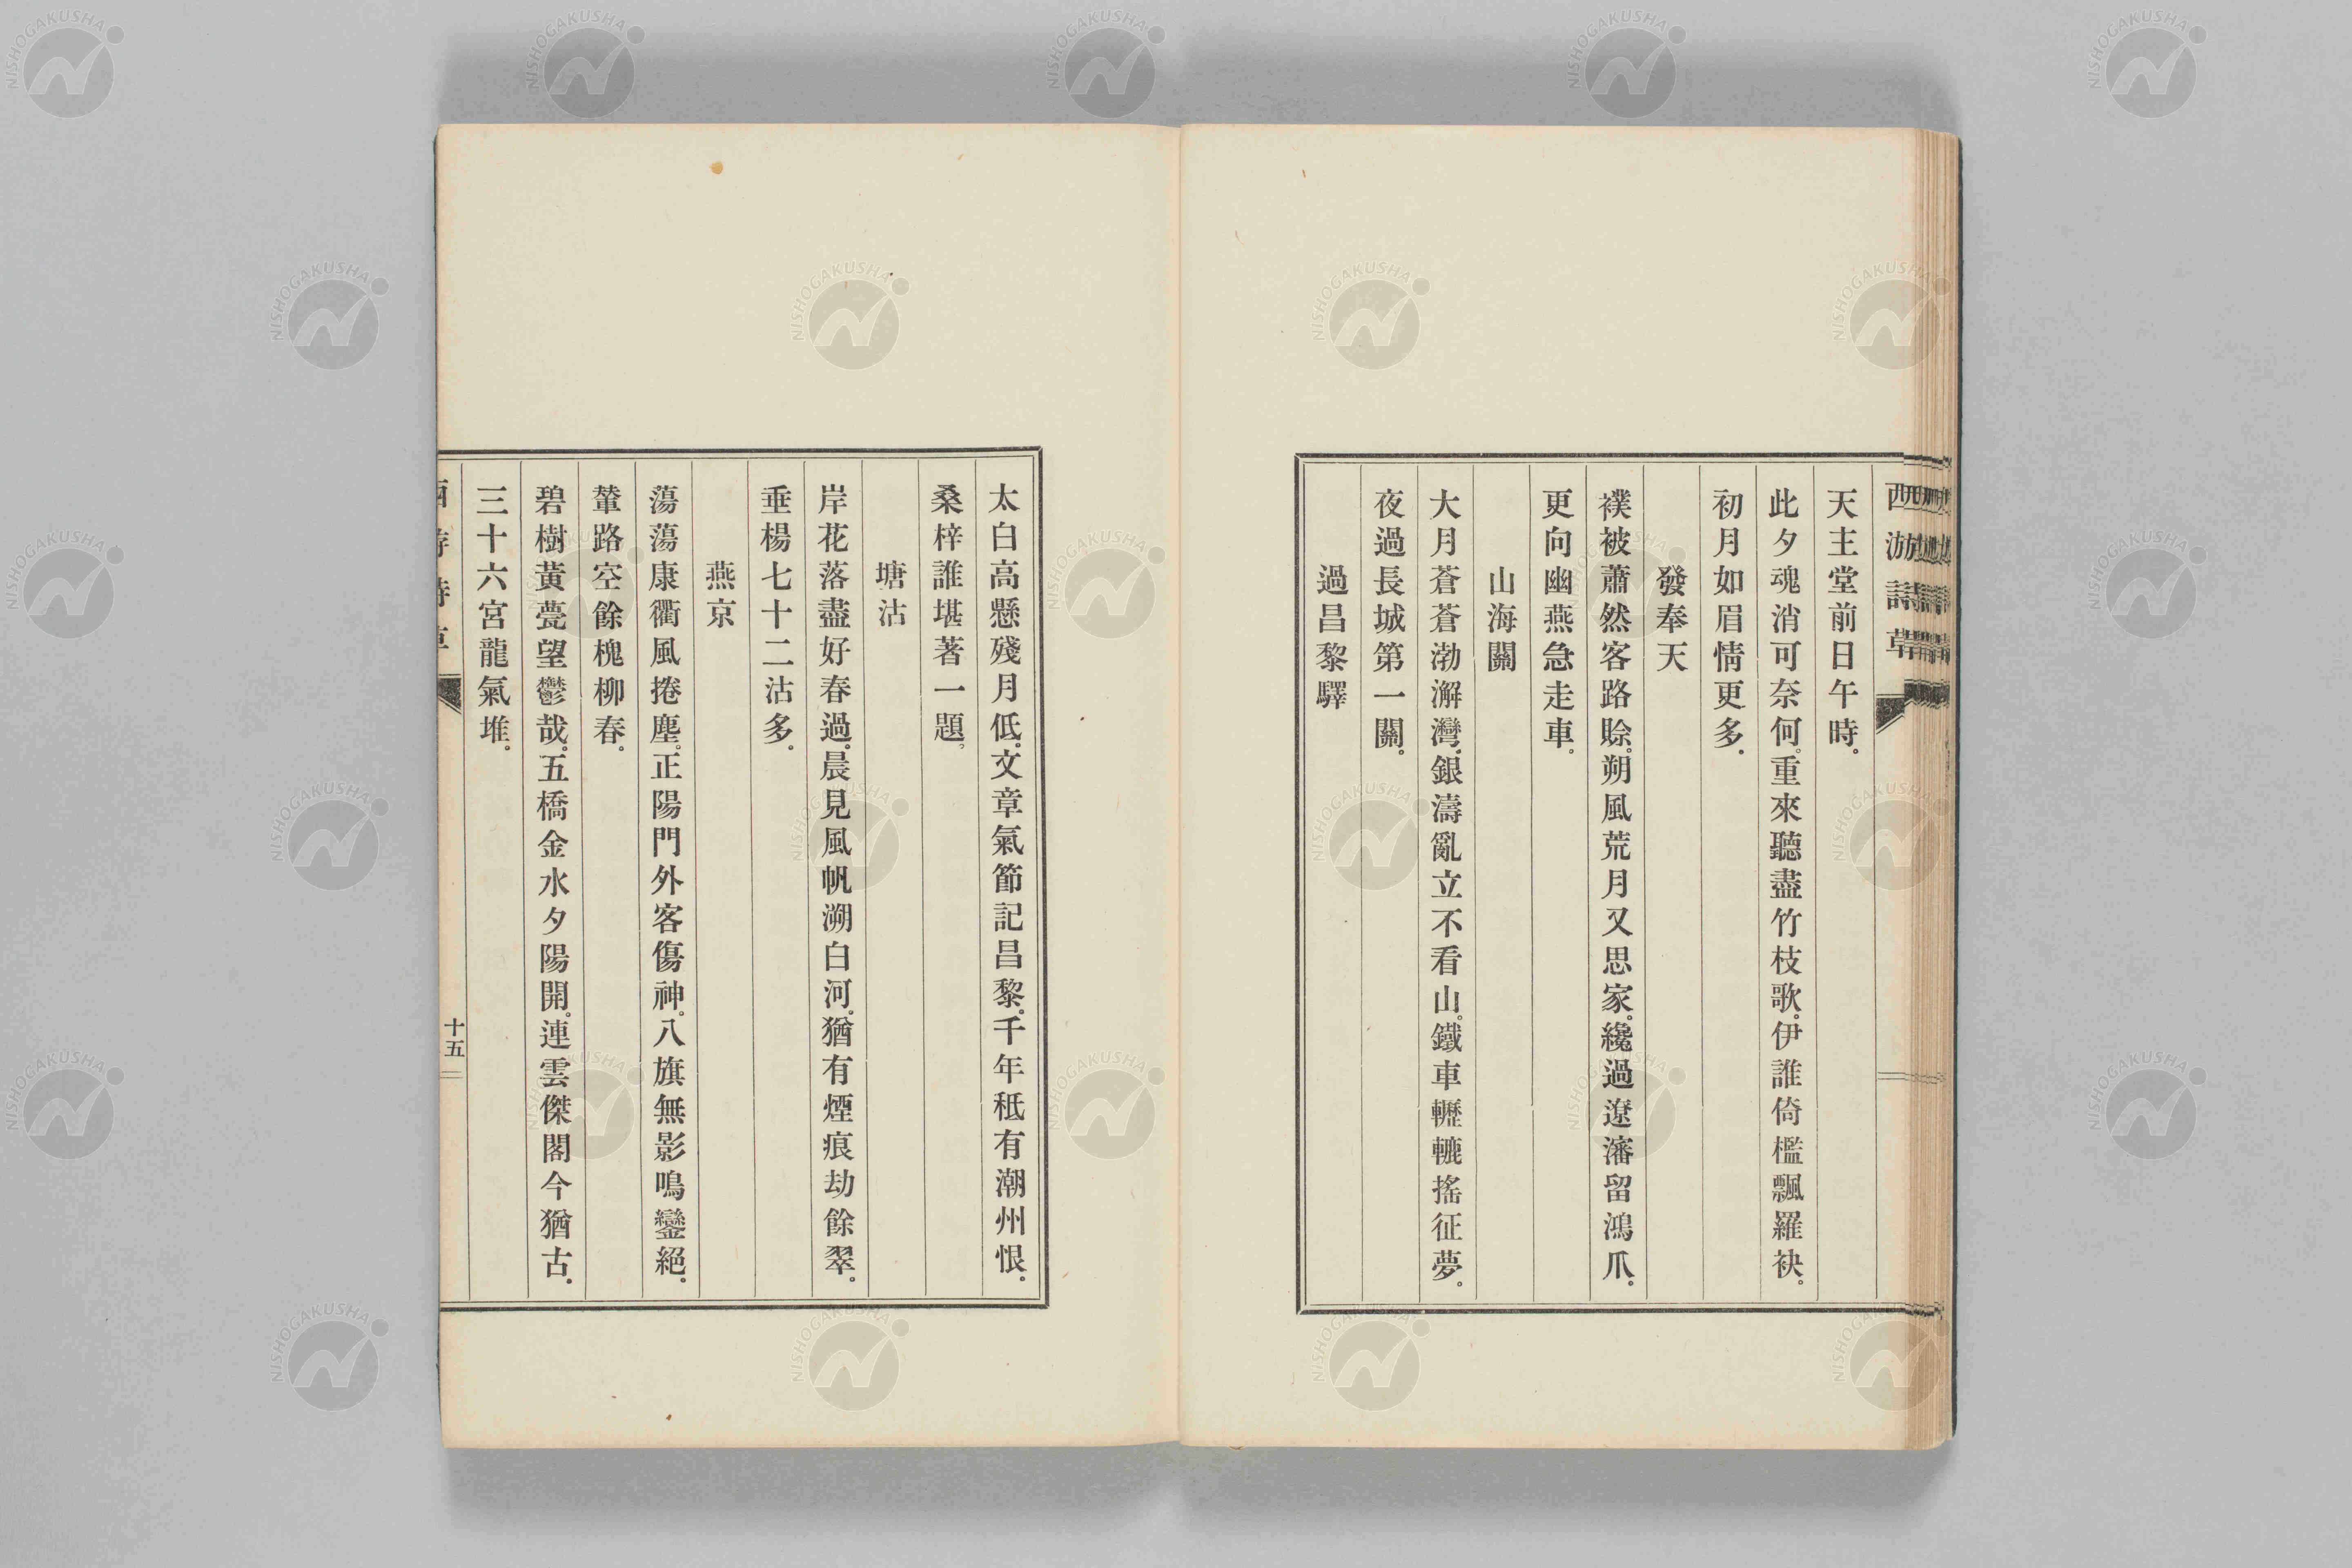 西游詩草
天主堂前日午時。
此夕魂消可奈何。重來聽盡竹枝歌。伊誰倚檻飄羅袂。
初月如眉情更多。
發奉天
襆被蕭然客路賒。朔風荒月又思家。纔過遼瀋留鴻爪。
更向幽燕急走車。
山海關
大月蒼蒼渤澥灣。銀濤亂立不看山。鐵車轣轆搖征夢。
夜過長城第一關。
過昌黎驛
太白高懸殘月低。文章氣節記昌黎。千年秪有潮州恨。
桑梓誰堪著一題。
塘沽
岸花落盡好春過。晨見風帆溯白河。猶有煙痕劫餘翠。
垂楊七十二沽多。
燕京
蕩蕩康衢風捲塵。正陽門外客傷神。八旗無影鳴鑾絕。
輦路空餘槐柳春。
碧樹黃甍望鬱哉。五橋金水夕陽開。連雲傑閣今猶古。
三十六宮龍氣堆。
十五
NISHOGAKUSHA